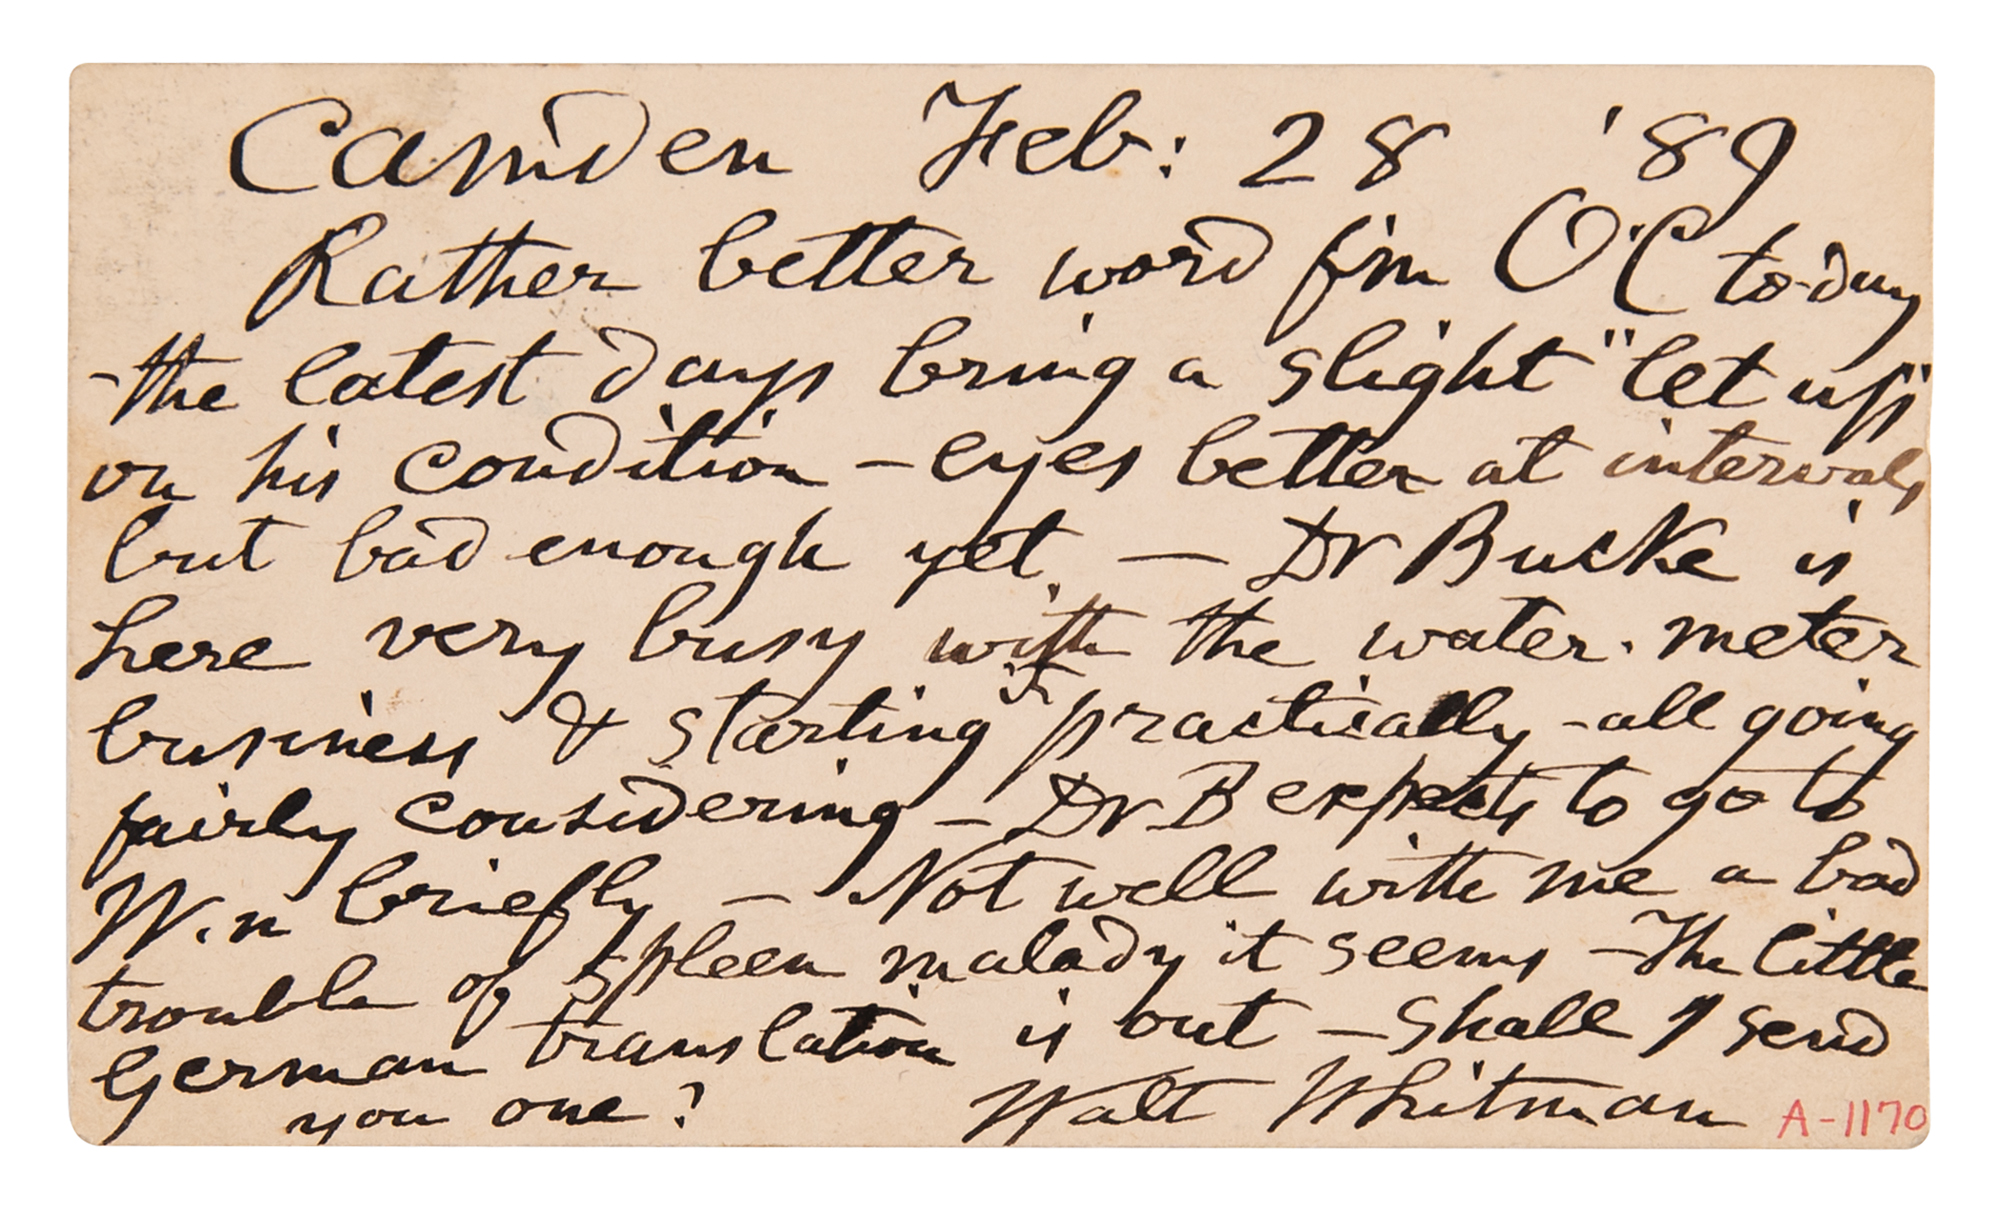 Camden Feb: 28 '89
Rather better word f'm O'C to-day
- the latest days bring a slight "let up"
on his condition - eyes better at intervals
but bad enough yet. — Dr Bucke is
here very busy with the water-meter
business & starting it practically - all going
fairly considering - Dr B expects to go to
W.n briefly - Not well with me a bad
trouble of spleen malady it seems - The little
German translation is out - Shall I send
you one?    Walt Whitman
A-1170